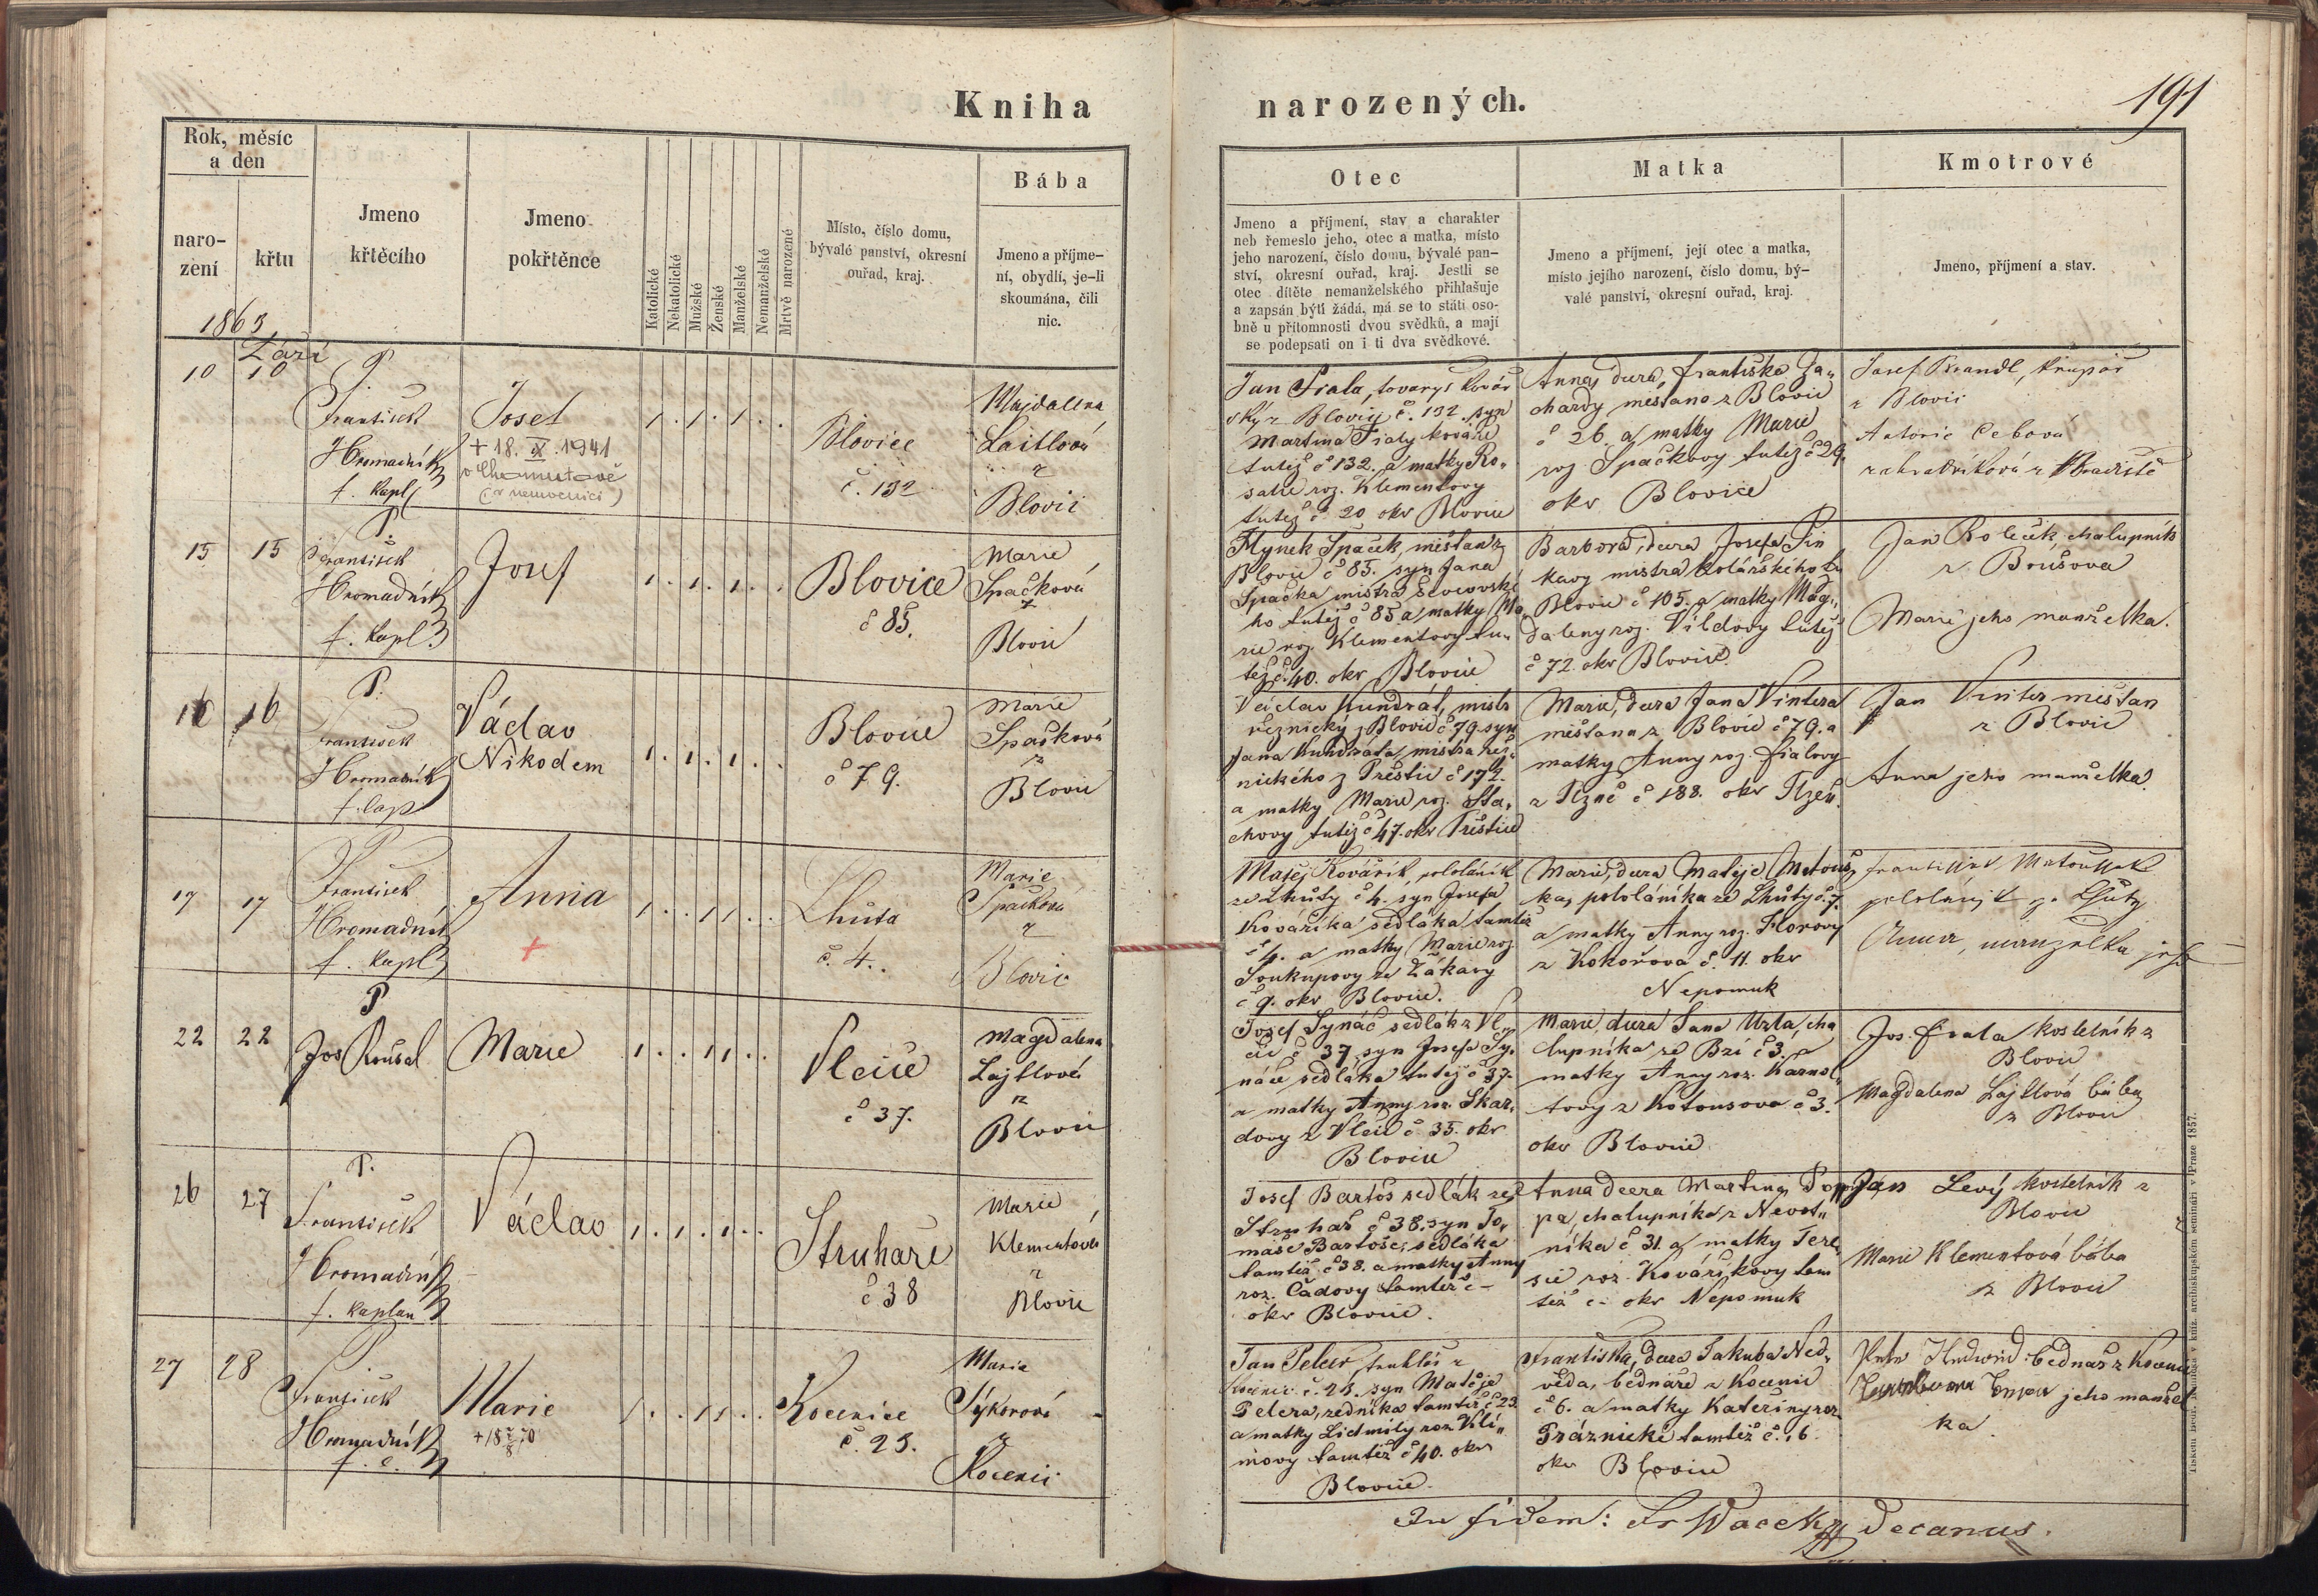 Kniha narozených.
191
Rok, měsíc
a den
naro-
zení
křtu
Jmeno
křtěcího
Jmeno
pokřtěnce
Katolické
Nekatolické
Mužské
Ženské
Manželské
Nemanželské
Mrtvě narozené
Místo, číslo domu,
bývalé panství, okresní
ouřad, kraj.
Bába
Jmeno a příjme-
ní, obydlí, je-li
skoumána, čili
nic.
Otec
Jmeno a příjmení, stav a charakter
neb řemeslo jeho, otec a matka, místo
jeho narození, číslo domu, bývalé pan-
ství, okresní ouřad, kraj. Jestli se
otec dítěte nemanželského přihlašuje
a zapsán býti žádá, má se to státi oso-
bně u přítomnosti dvou svědků, a mají
se podepsati on i ti dva svědkové.
Matka
Jmeno a příjmení, její otec a matka,
místo jejího narození, číslo domu, bý-
valé panství, okresní ouřad, kraj.
Kmotrové
Jmeno, příjmení a stav.
1863
Září
10 10
P.
František
Hromadník
f. kapl.
Josef
+ 18. IX. 1941
v Chomutově
(v nemocnici)
1 . 1 . 1 . .
Blovice
č. 132
Majdalena
Laitlová
z
Blovic
Jan Fiala, tovaryš kovář
ský z Blovic č. 132. syn
Martina Fialy kováře
tutéž č 132. a matky Ro„
salie roz. Klementovy
tutéž č 20 okr Blovice
Anna, dcera Františka Za„
chardy měšťana z Blovic
č 26. a matky Marie
roz Špačkovy tutéž č 29.
okr Blovice
Josef Brandl, krupař
z Blovic
Antonie Cebova
zahradníková z Hradiště
15 15
P.
František
Hromadník
f. kapl.
Josef
1 . 1 . 1 . .
Blovice
č 85.
Marie
Špačková
z
Blovic
Hynek Špaček, měšťan z
Blovic č 85. syn Jana
Špačka mistra ševcovské
ho tutéž č 85 a matky Ma„
rie roz. Klementovy tu„
též č. 40. okr Blovice
Barbora, dcera Josefa Sin
kavy mistra kolářského z
Blovic č 105. a matky Mag„
daleny roz. Vildovy tutéž
č 72. okr Blovice.
Jan Roleček, chalupník
z Boušova
Marie jeho manželka.
16 16
P.
František
Hromadník
f. cap
Václav
Nikodem
1 . 1 . 1 . .
Blovice
č 79.
Marie
Špačková
z
Blovic
Václav Kundrát, mistr
řeznický z Blovic č 79. syn
Jana Kundráta, mistra řez„
nického z Přeštic č 172.
a matky Marie roz. Sta„
chovy tutéž č 47. okr Přeštice
Marie, dcera Jana Vintera
měšťana z Blovic č 79. a
matky Anny roz. Fialovy
z Plzně č 188. okr Plzeň.
Jan Vinter měšťan
z Blovic
Anna jeho manželka.
17 17
P
František
Hromadník
f. kapl.
Anna
+
1 . . 1 1 . .
Lhůta
č. 4.
Marie
Špačková
z
Blovic
Matěj Kovářík, pololáník
ze Lhůty č 4. syn Josefa
Kováříka sedláka tamtéž
č 4. a matky Marie roz
Soukupovy ze Žákavy
č 9. okr Blovice.
Marie, dcera Matěje Matouš„
ka, pololáníka ze Lhůty č. 7.
a matky Anny roz. Florovy
z Kokořova č. 11. okr
Nepomuk
František Matoušek
pololáník ze Lhůty
Anna, manželka jeho
22 22
P
Jos Rousal
Marie
1 . . 1 1 . .
Vlčice
č 37.
Magdalena
Lajtlová
z
Blovic
Josef Synáč sedlák z Vl„
čic č 37 syn Josefa Sy„
náče sedláka tutéž č 37.
a matky Anny roz. Škar„
dovy z Vlčic č 35. okr
Blovice
Marie, dcera Jana Uzla, cha
lupníka ze Bzí č 3. a
matky Anny roz. Karnol„
tovy z Kotousova č 3.
okr Blovice
Jos. Fiala kostelník z
Blovic
Magdalena Lajtlová bába
z Blovic
26 27
P.
František
Hromadník
f. kaplan
Václav
1 . 1 . 1 . .
Struhaře
č 38
Marie
Klementová
z
Blovic
Josef Bartoš sedlák ze
Struhař č 38. syn To„
máše Bartoše, sedláka
tamtéž č 38. a matky Anny
roz. Čadovy tamtéž č –
okr Blovice.
Anna dcera Martina Pop
pa, chalupníka z Nevot„
níka č 31. a matky Tere„
sie roz. Kovaříkovy tam
též č – okr Nepomuk
Jan Levý kostelník z
Blovic
Marie Klementová bába
z Blovic
27 28
P.
František
Hromadník
f. c.
Marie
1 . . 1 1 . .
Kocenice
č. 23.
Marie
Sýkorová
z
Kocenic
Jan Pelcr, truhlář z
Kocenic č. 23. syn Matěje
Pelcra, zedníka tamtéž č 23
a matky Lidmily roz. Kli„
movy tamtéž č 40. okr
Blovice.
Františka, dcera Jakuba Ned„
věda, bednáře z Kocenic
č 6. a matky Kateřiny roz
Práznické tamtéž č. 16.
okr Blovice
bednář z Kocenic
jeho manžel
ka.
In fidem: Fr Wacek decanus.